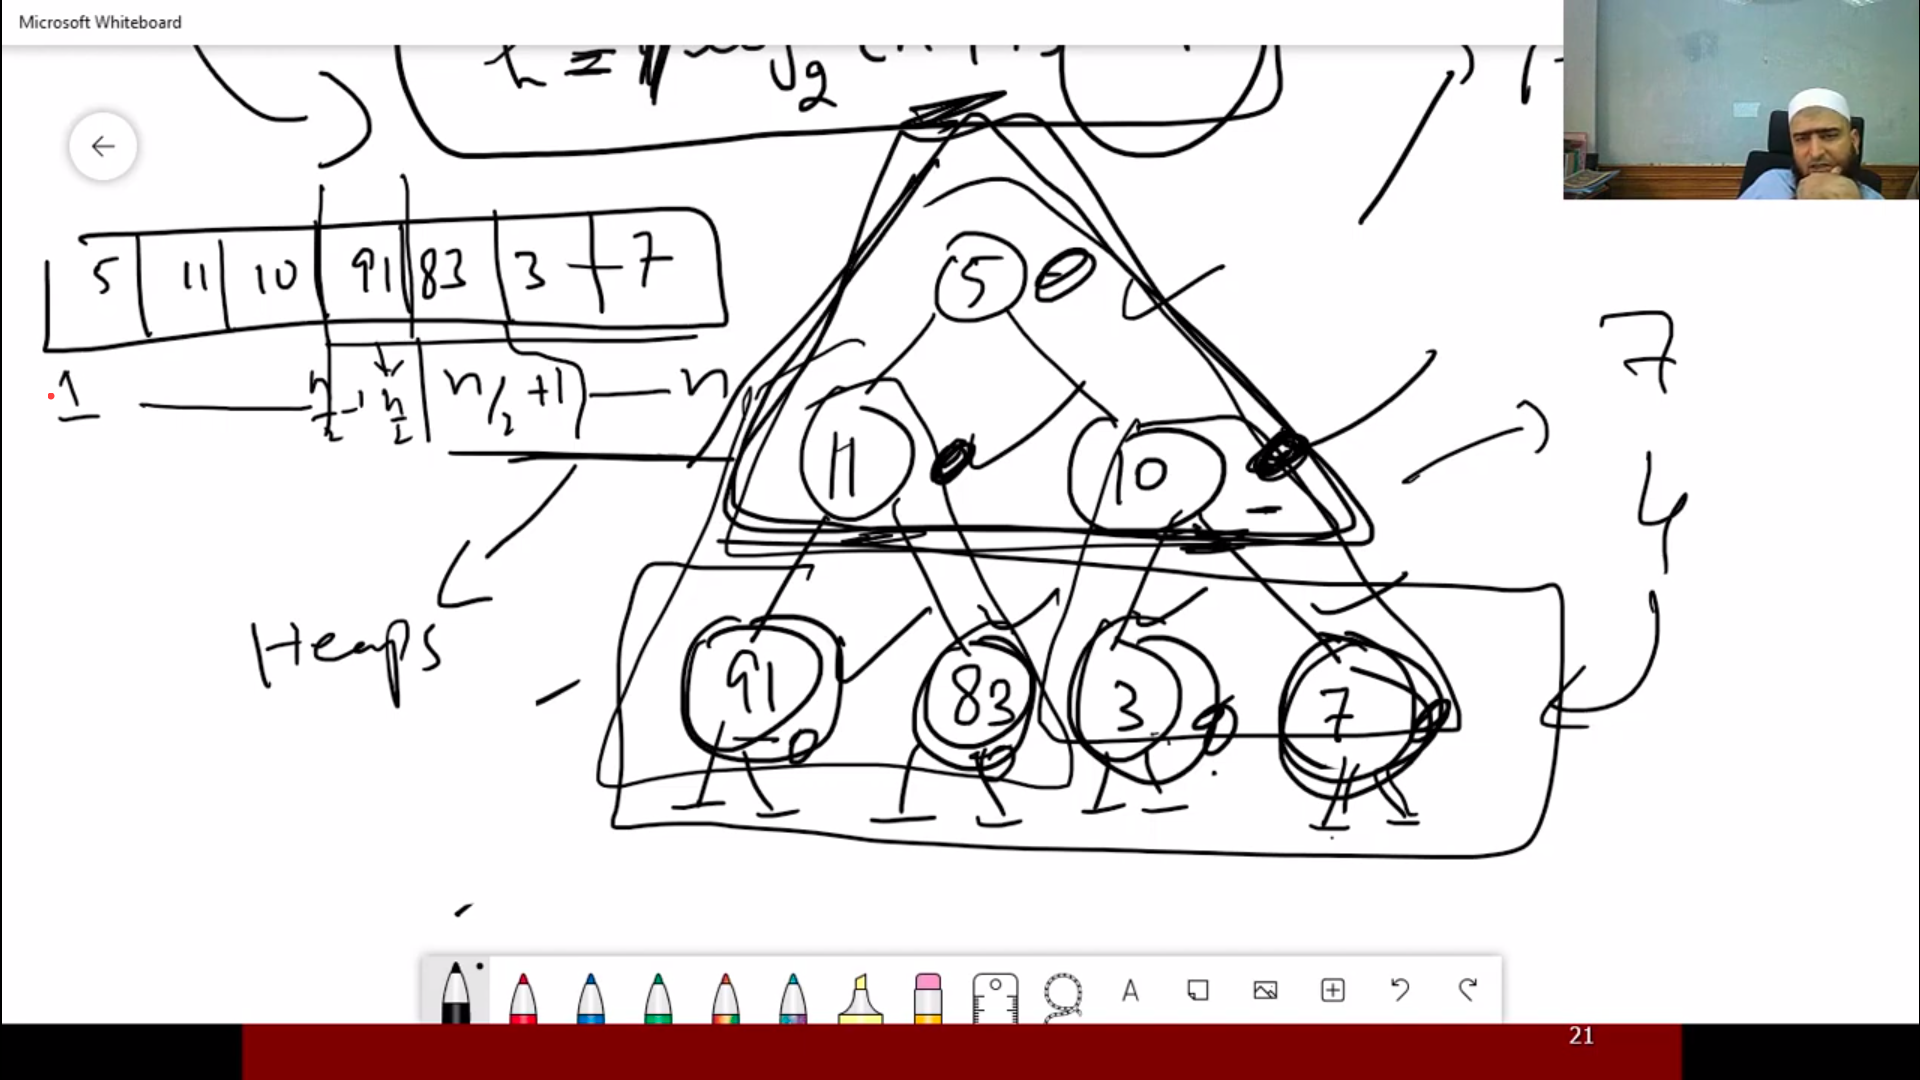 Microsoft Whiteboard
5 11 10 91 83 3 7
1 n/2 -1 n/2 n/2 +1 n
Heaps
5
11 10
91 83 3 7
7
4
A
21